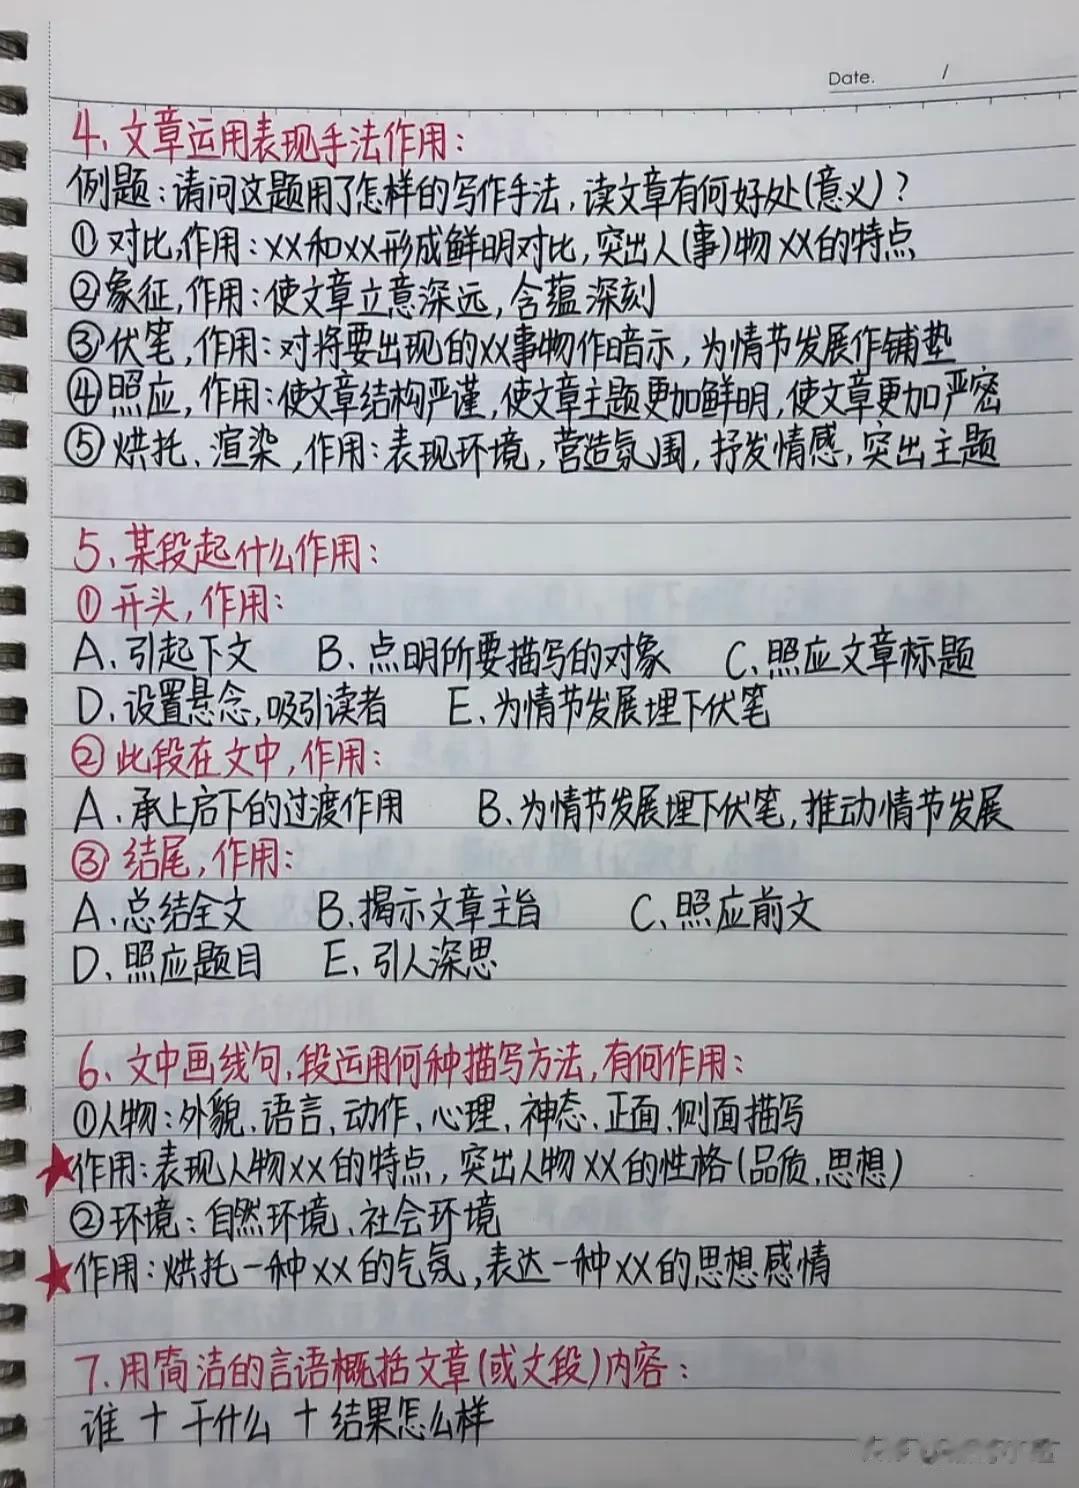 Date. /
4、文章运用表现手法作用:
例题:请问这题用了怎样的写作手法,读文章有何好处(意义)?
①对比,作用:XX和XX形成鲜明对比,突出人(事)物XX的特点
②象征,作用:使文章立意深远,含蕴深刻
③伏笔,作用:对将要出现的XX事物作暗示,为情节发展作铺垫
④照应,作用:使文章结构严谨,使文章主题更加鲜明,使文章更加严密
⑤烘托、渲染,作用:表现环境,营造氛围,抒发情感,突出主题
5、某段起什么作用:
①开头,作用:
A、引起下文 B、点明所要描写的对象 C、照应文章标题
D、设置悬念,吸引读者 E、为情节发展埋下伏笔
②此段在文中,作用:
A、承上启下的过渡作用 B、为情节发展埋下伏笔,推动情节发展
③结尾,作用:
A、总结全文 B、揭示文章主旨 C、照应前文
D、照应题目 E、引人深思
6、文中画线句、段运用何种描写方法,有何作用:
①人物:外貌、语言、动作、心理、神态、正面、侧面描写
★作用:表现人物XX的特点,突出人物XX的性格(品质、思想)
②环境:自然环境、社会环境
★作用:烘托一种XX的气氛,表达一种XX的思想感情
7、用简洁的言语概括文章(或文段)内容:
谁+干什么+结果怎么样